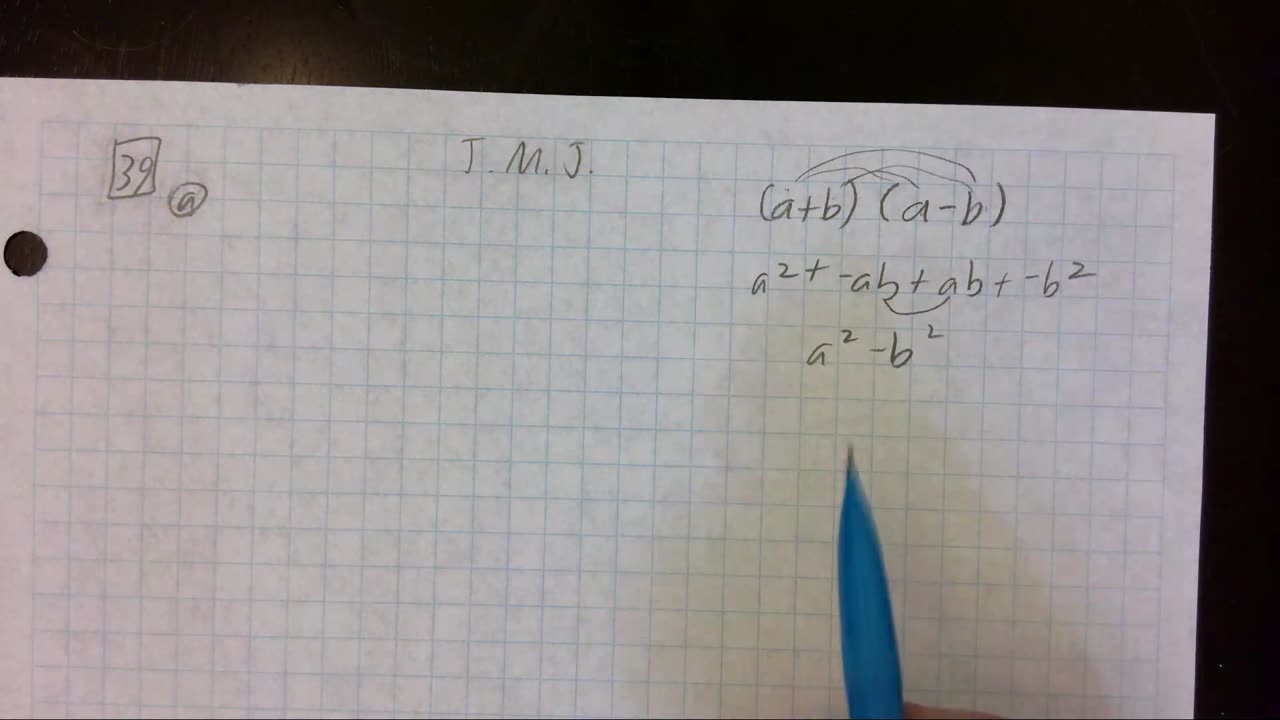 39
a
J. M. J.
(a+b) (a-b)
a² + -ab + ab + -b²
a² - b²